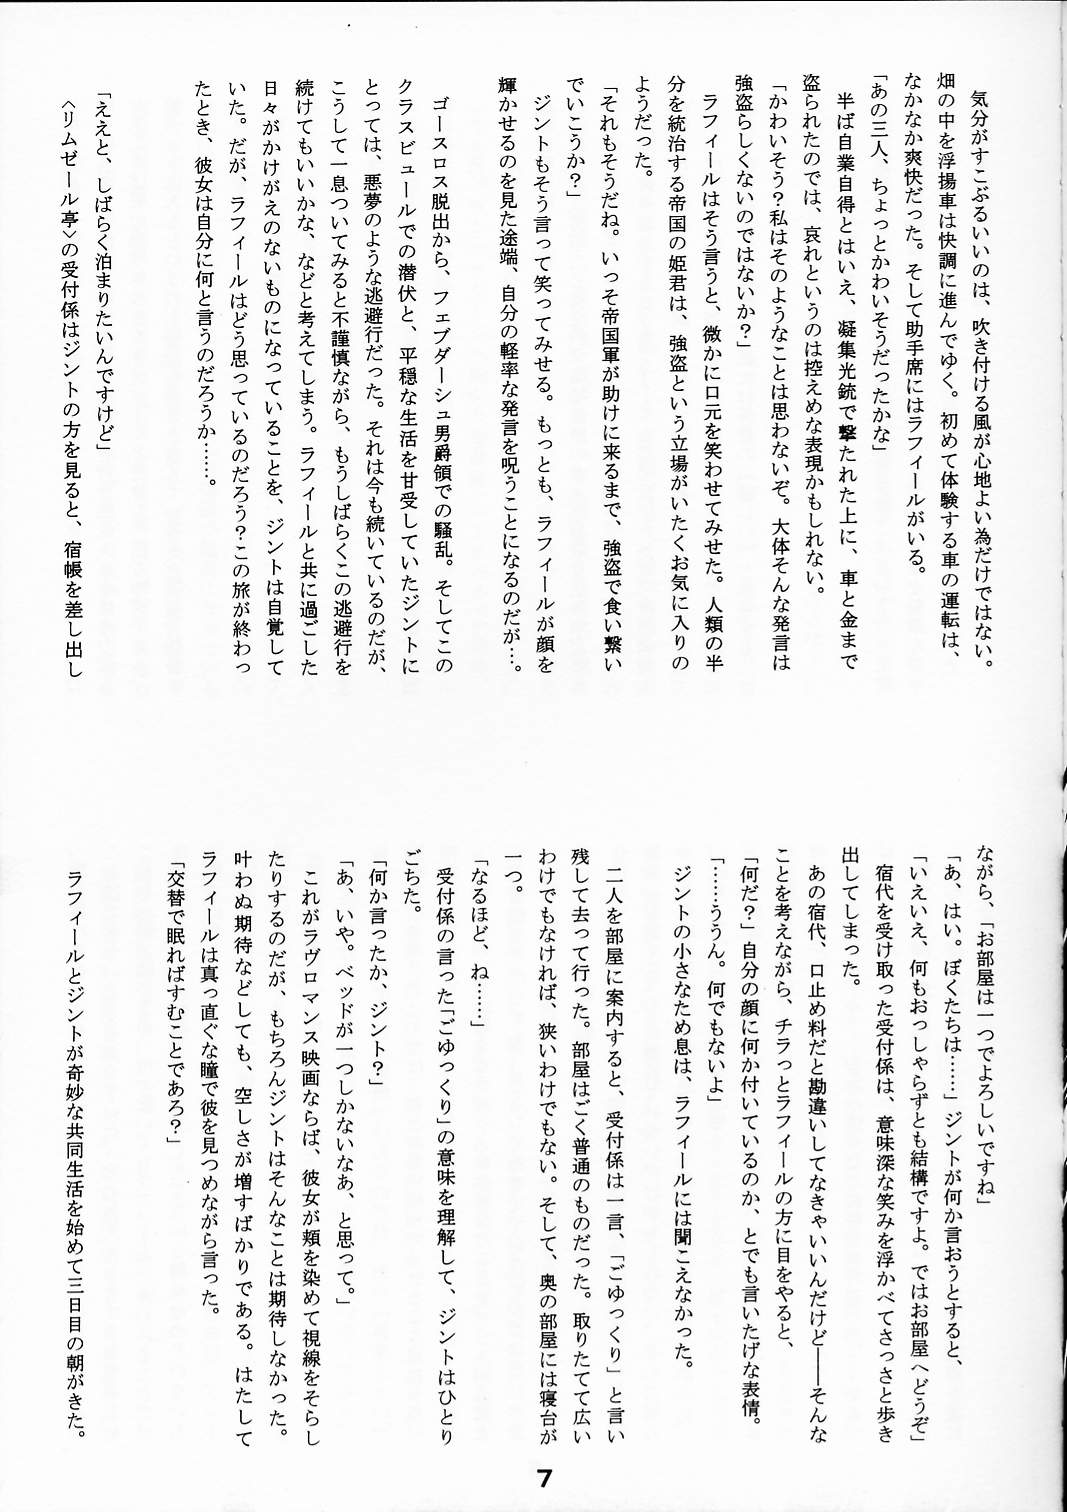 気分がすこぶるいいのは、吹き付ける風が心地よい為だけではない。
畑の中を浮揚車は快調に進んでゆく。初めて体験する車の運転は、
なかなか爽快だった。そして助手席にはラフィールがいる。
「あの三人、ちょっとかわいそうだったかな」
半ば自業自得とはいえ、凝集光銃で撃たれた上に、車と金まで
盗られたのでは、哀れというのは控えめな表現かもしれない。
「かわいそう？私はそのようなことは思わないぞ。大体そんな発言は
強盗らしくないのではないか？」
ラフィールはそう言うと、微かに口元を笑わせてみせた。人類の半
分を統治する帝国の姫君は、強盗という立場がいたくお気に入りの
ようだった。
「それもそうだね。いっそ帝国軍が助けに来るまで、強盗で食い繋い
でいこうか？」
ジントもそう言って笑ってみせる。もっとも、ラフィールが顔を
輝かせるのを見た途端、自分の軽率な発言を呪うことになるのだが…。
ゴースロス脱出から、フェブダーシュ男爵領での騒乱。そしてこの
クラスビュールでの潜伏と、平穏な生活を甘受していたジントに
とっては、悪夢のような逃避行だった。それは今も続いているのだが、
こうして一息ついてみると不謹慎ながら、もうしばらくこの逃避行を
続けてもいいかな、などと考えてしまう。ラフィールと共に過ごした
日々がかけがえのないものになっていることを、ジントは自覚して
いた。だが、ラフィールはどう思っているのだろう？この旅が終わっ
たとき、彼女は自分に何と言うのだろうか……。
「ええと、しばらく泊まりたいんですけど」
〈リムゼール亭〉の受付係はジントの方を見ると、宿帳を差し出し
ながら、「お部屋は一つでよろしいですね」
「あ、はい。ぼくたちは……」ジントが何か言おうとすると、
「いえいえ、何もおっしゃらずとも結構ですよ。ではお部屋へどうぞ」
宿代を受け取った受付係は、意味深な笑みを浮かべてさっさと歩き
出してしまった。
あの宿代、口止め料だと勘違いしてなきゃいいんだけど――そんな
ことを考えながら、チラっとラフィールの方に目をやると、
「何だ？」自分の顔に何か付いているのか、とでも言いたげな表情。
「……ううん。何でもないよ」
ジントの小さなため息は、ラフィールには聞こえなかった。
二人を部屋に案内すると、受付係は一言、「ごゆっくり」と言い
残して去って行った。部屋はごく普通のものだった。取りたてて広い
わけでもなければ、狭いわけでもない。そして、奥の部屋には寝台が
一つ。
「なるほど、ね……」
受付係の言った「ごゆっくり」の意味を理解して、ジントはひとり
ごちた。
「何か言ったか、ジント？」
「あ、いや。ベッドが一つしかないなあ、と思って。」
これがラヴロマンス映画ならば、彼女が頬を染めて視線をそらし
たりするのだが、もちろんジントはそんなことは期待しなかった。
叶わぬ期待などしても、空しさが増すばかりである。はたして
ラフィールは真っ直ぐな瞳で彼を見つめながら言った。
「交替で眠ればすむことであろ？」
ラフィールとジントが奇妙な共同生活を始めて三日目の朝がきた。
7